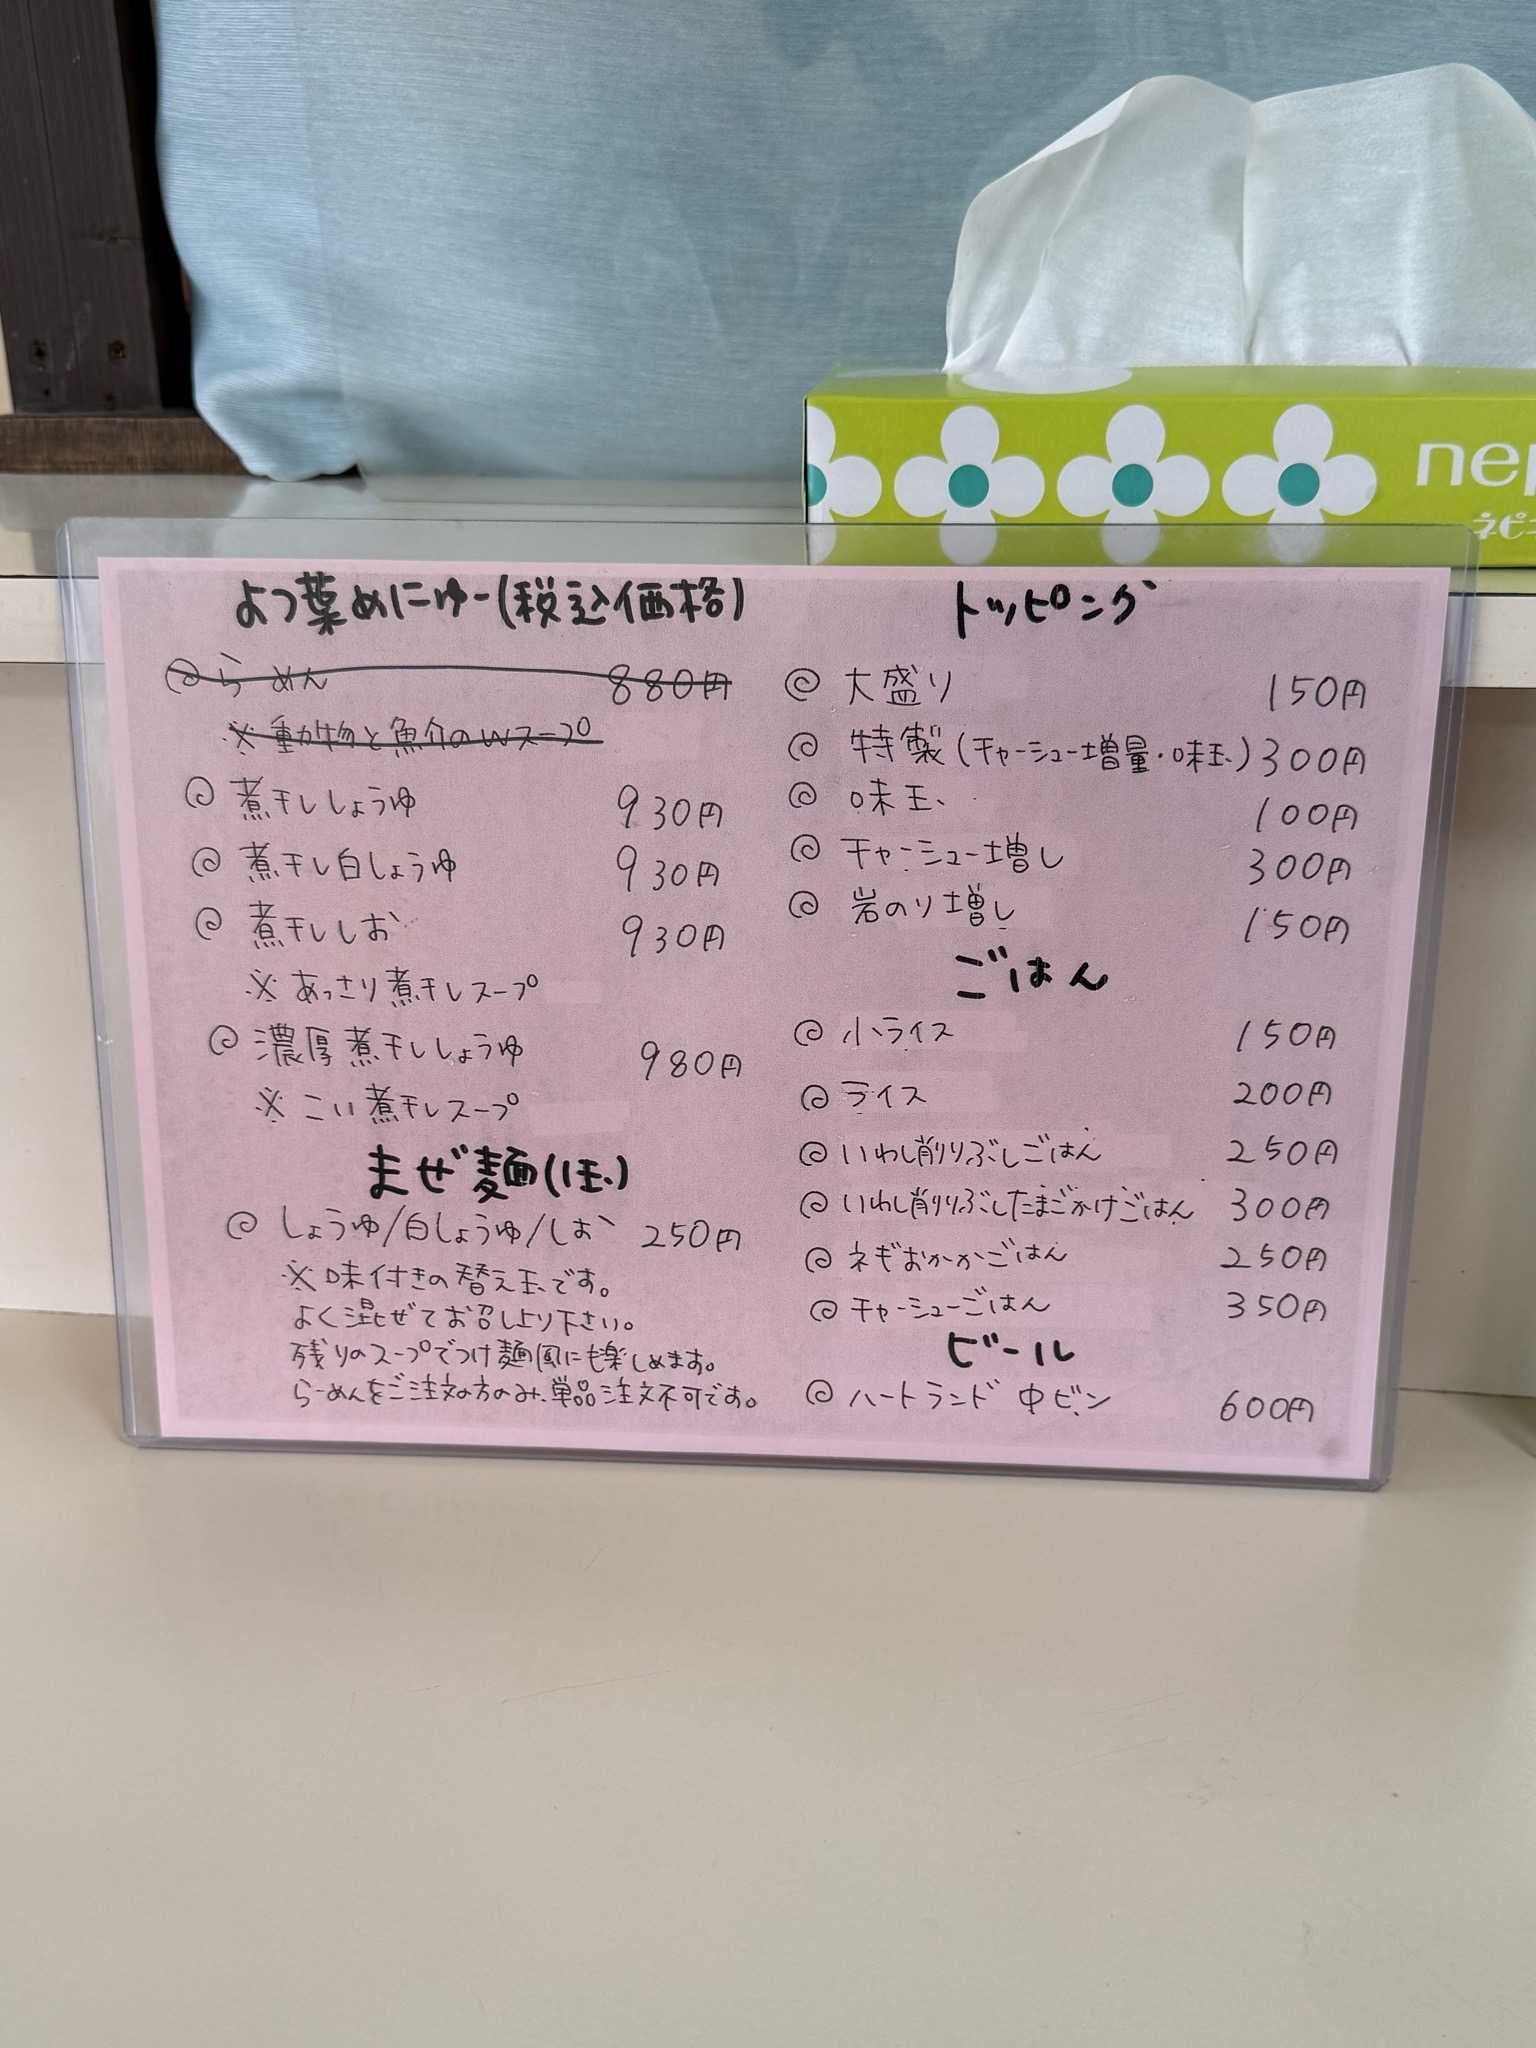 nep
ネピ
よつ葉めにゅー(税込価格)
らーめん 880円
※動物と魚介のWスープ
煮干ししょうゆ 930円
煮干し白しょうゆ 930円
煮干ししお 930円
※あっさり煮干しスープ
濃厚煮干ししょうゆ 980円
※こい煮干しスープ
まぜ麺(1玉)
しょうゆ/白しょうゆ/しお 250円
※味付きの替え玉です。
よく混ぜてお召し上り下さい。
残りのスープでつけ麺風にも楽しめます。
らーめんをご注文の方のみ、単品注文不可です。
トッピング
大盛り 150円
特製(チャーシュー増量・味玉)300円
味玉 100円
チャーシュー増し 300円
岩のり増し 150円
ごはん
小ライス 150円
ライス 200円
いわし削りぶしごはん 250円
いわし削りぶしたまごかけごはん 300円
ネギおかかごはん 250円
チャーシューごはん 350円
ビール
ハートランド 中ビン 600円